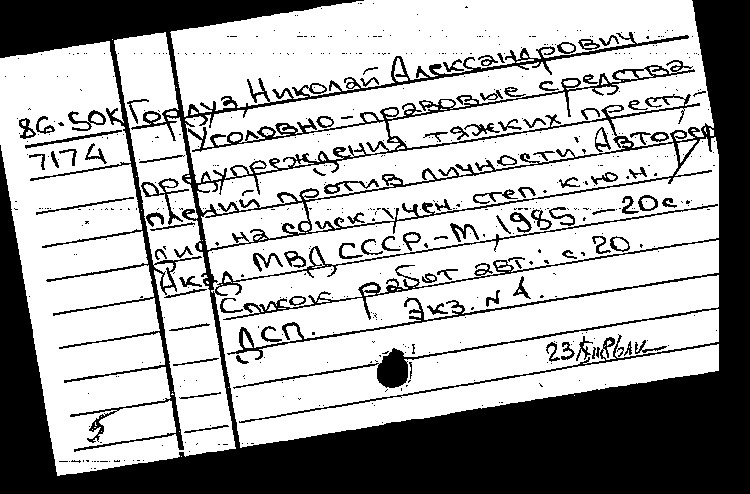 86-50К Гордуз, Николай Александрович.
7174 Уголовно-правовые средства
предупреждения тяжких престу-
плений против личности: Автореф.
дис. на соиск. учен. степ. к.ю.н. /
Акад. МВД СССР. - М., 1985. - 20 с.
Список работ авт.: с. 20.
ДСП. Экз. N 4.
5